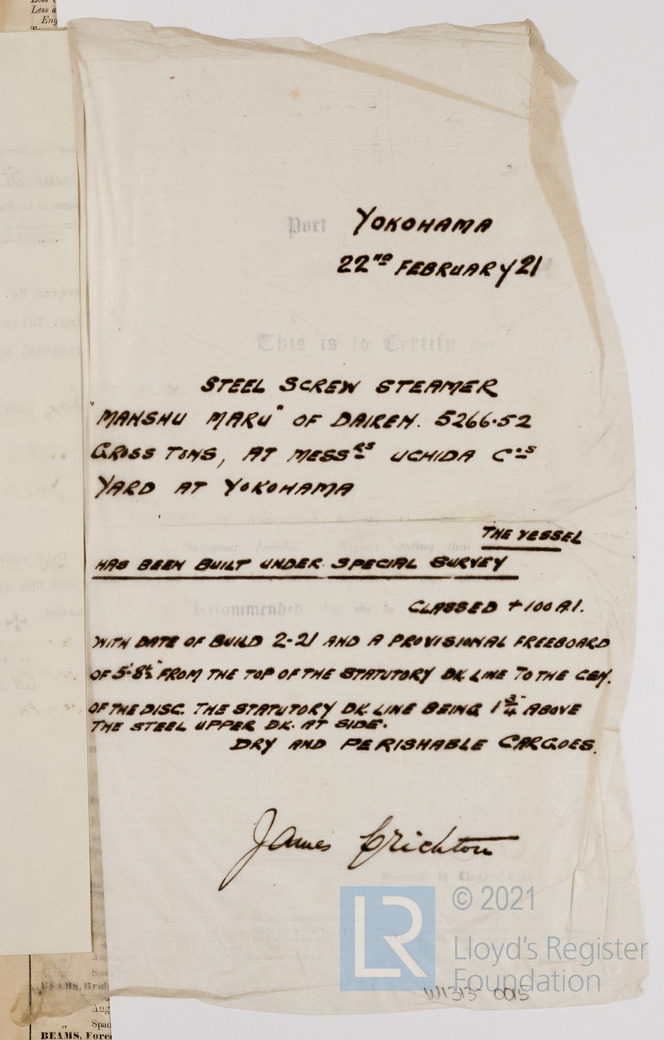 Port YOKOHAMA
22ND FEBRUARY 21
This is to Certify
STEEL SCREW STEAMER
"MANSHU MARU" OF DAIREN. 5266·52
GROSS TONS, AT MESSRS UCHIDA COS
YARD AT YOKOHAMA
THE VESSEL
HAS BEEN BUILT UNDER SPECIAL SURVEY
Recommended
CLASSED + 100 A1.
WITH DATE OF BUILD 2-21 AND A PROVISIONAL FREEBOARD
OF 5'-8½" FROM THE TOP OF THE STATUTORY DK LINE TO THE CEN.
OF THE DISC. THE STATUTORY DK. LINE BEING 1¾" ABOVE
THE STEEL UPPER DK. AT SIDE.
DRY AND PERISHABLE CARGOES.
James Crichton
LR © 2021
Lloyd's Register
Foundation
W1313-0015
BEAMS,
Spac
BEAMS, Forec